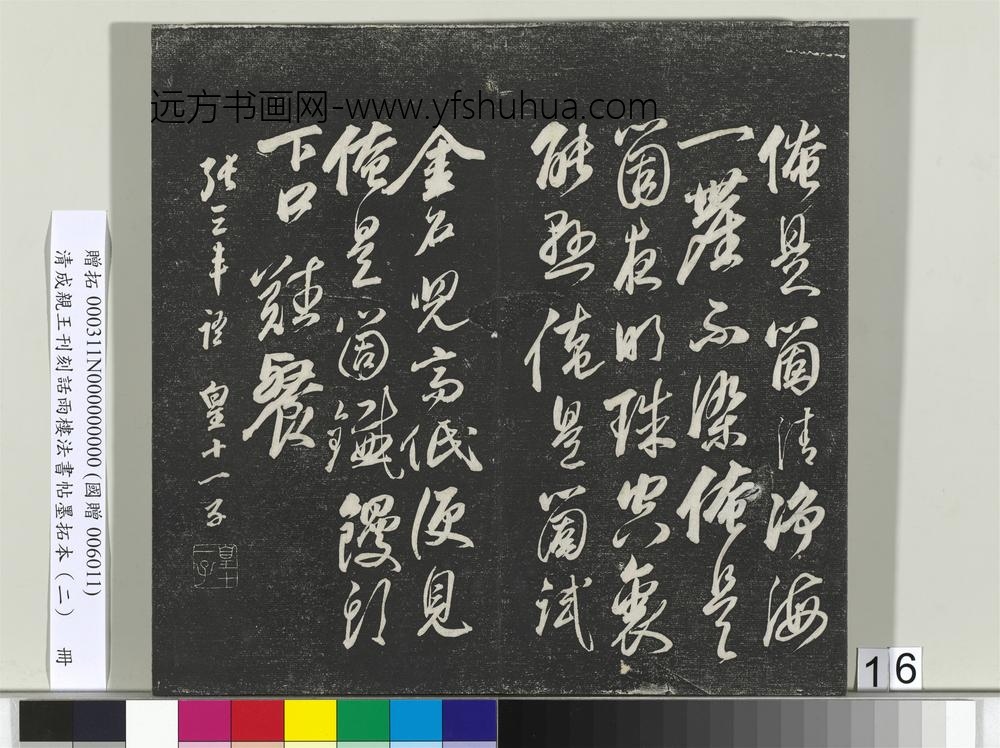 远方书画网-www.yfshuhua.com
俺是箇清淨海
一塵不染俺是
箇夜明珠空裏
能懸俺是箇試
金石兒高低便見
俺是箇鐵饅頭
下口難餐
張三丰語 皇十一子
皇十一子
贈拓 000311N000000000 (國贈 006011)
清成親王刊刻話雨樓法書帖墨拓本(二) 冊
16